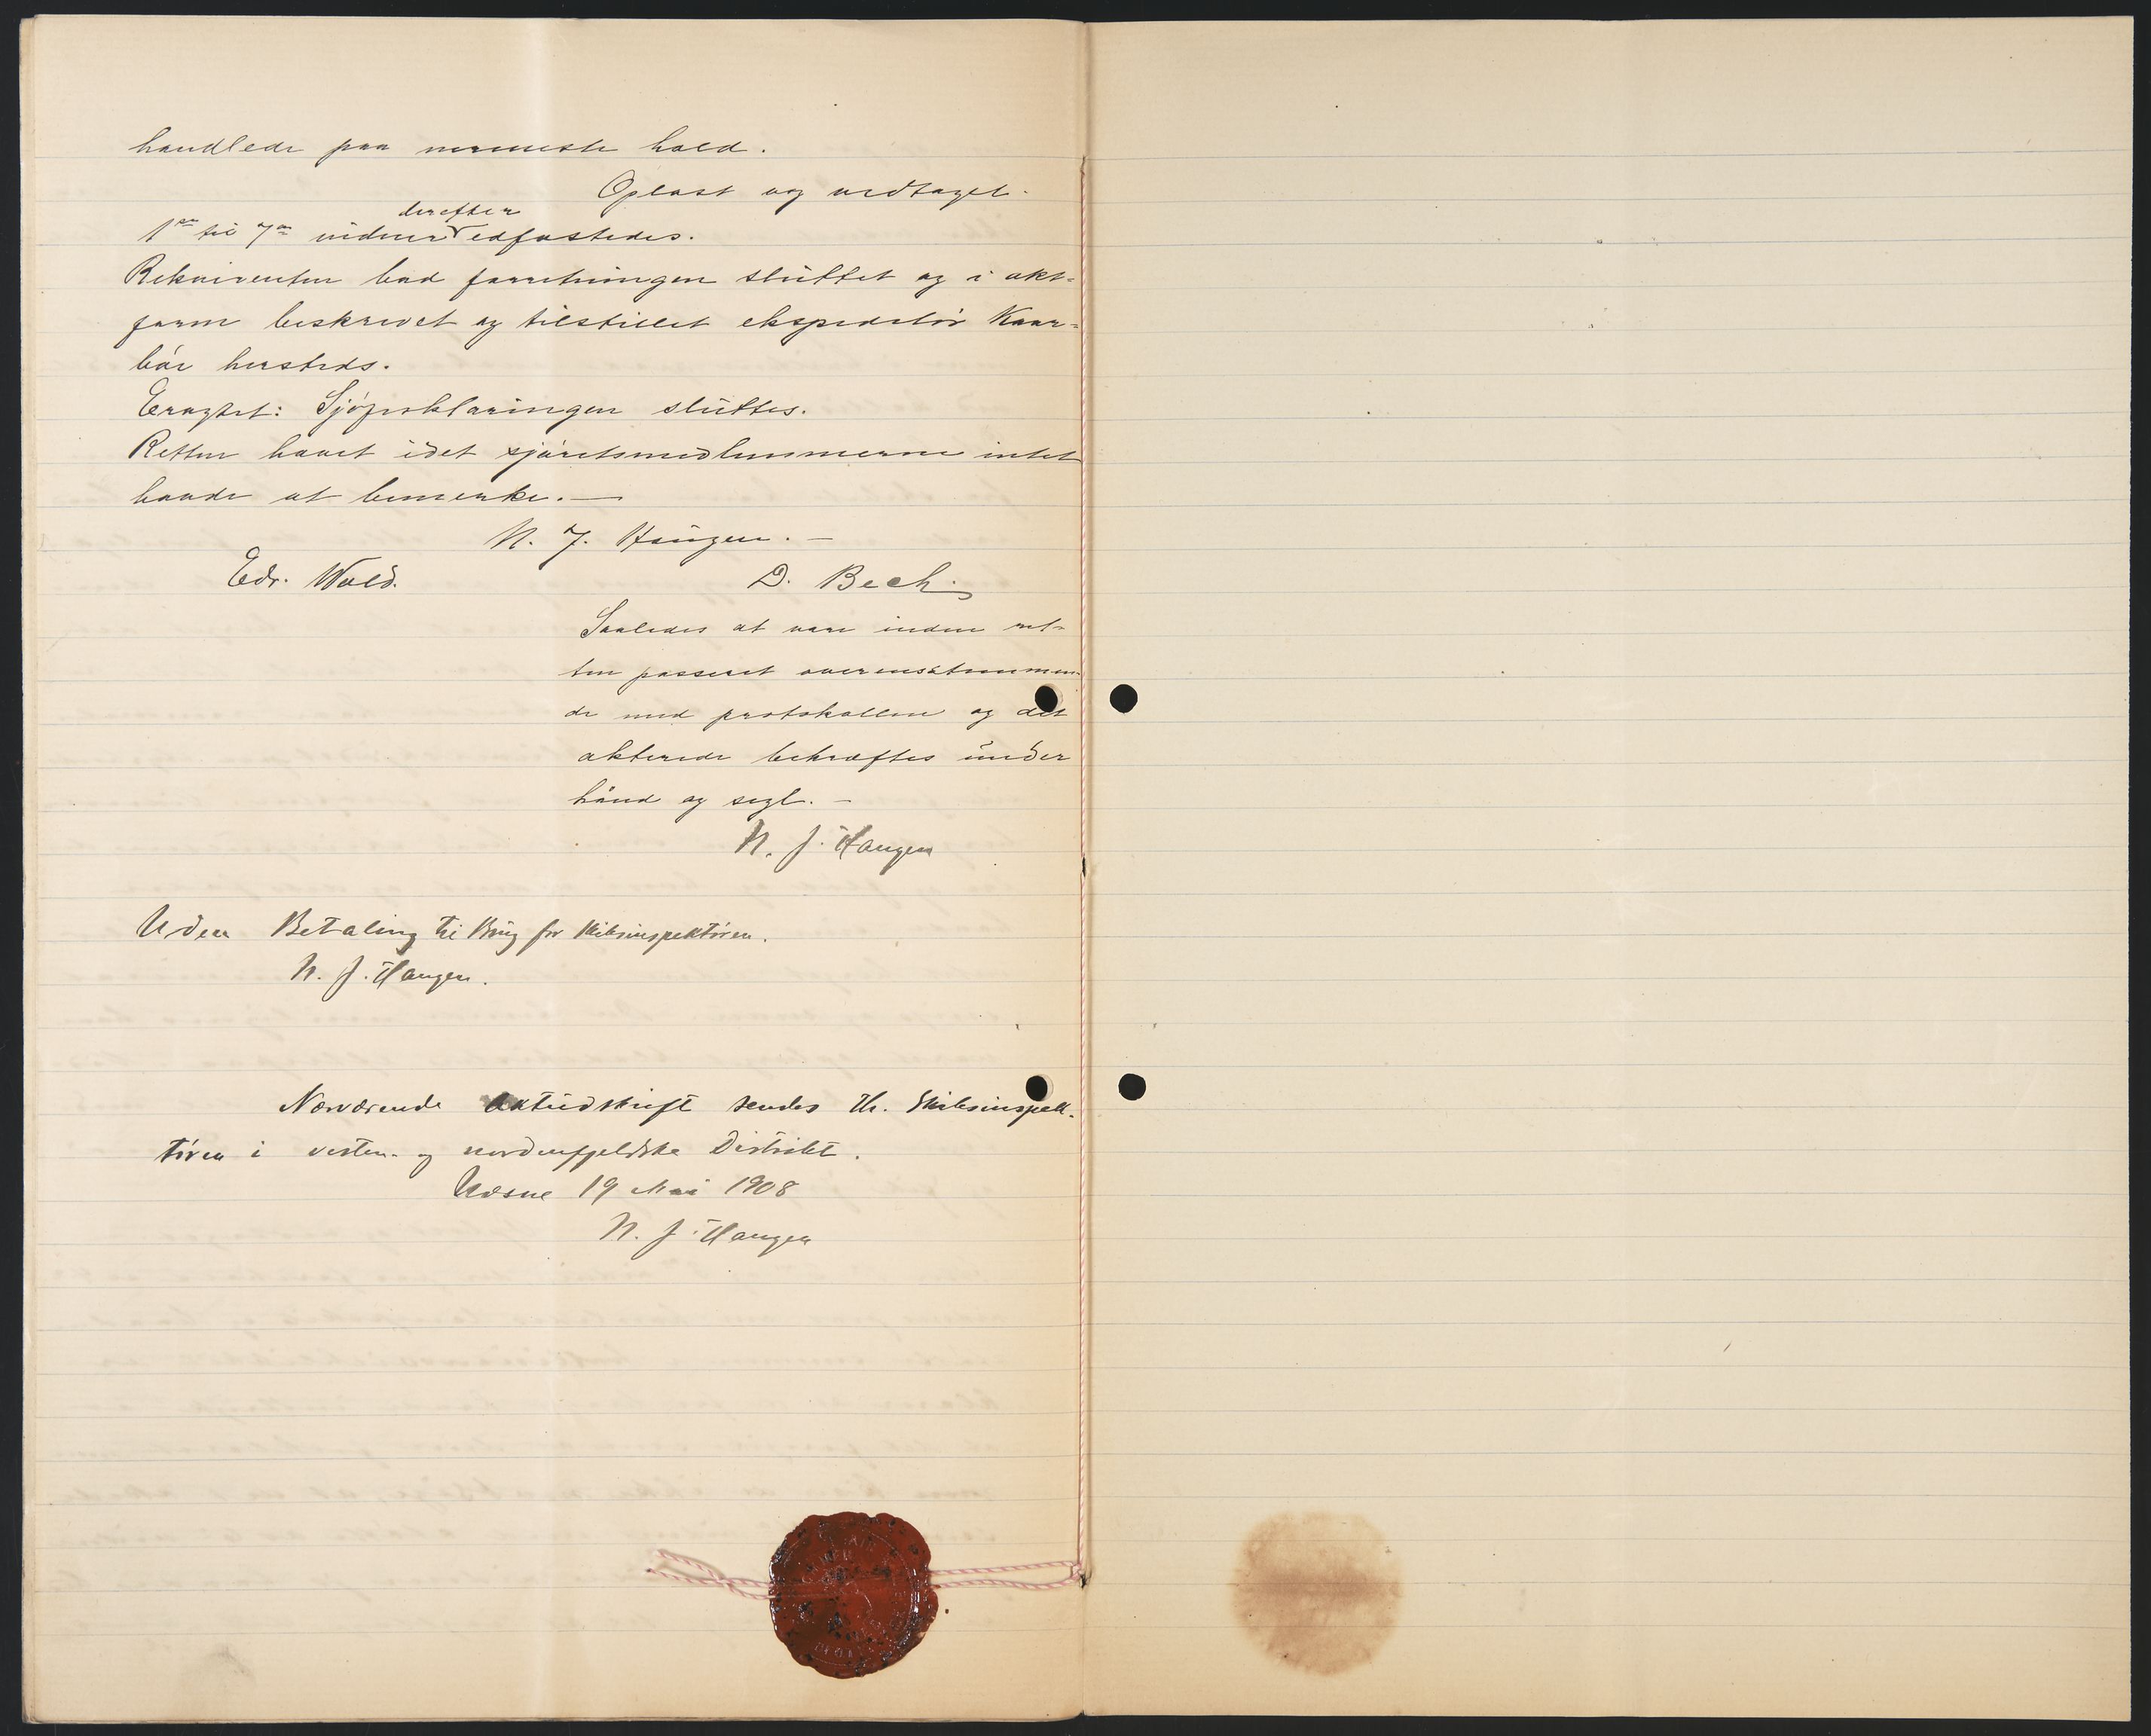 handlede paa nærmeste hold.
Oplæst og vedtaget.
derefter
1ste til 7de vidner edfæstedes.
Rekvirenten bad forretningen sluttet og i akt-
form beskrevet og tilstillet ekspeditør Kaar-
bö hersteds.
Eragtet: Sjöforklaringen sluttes.
Retten hævet idet sjöretsmedlemmerne intet
havde at bemerke. —
N. J. Haugen. —
Edv. Wold. D. Bech.
Saaledes at være inden ret-
ten passeret overensstemmen-
de med protokollen og det
akterede bekræftes under
haand og segl. —
N. J. Haugen
Uden Betaling til Brug for Skibsinspektøren.
N. J. Haugen.
Nærværende Aktudskrift sendes Hr. Skibsinspek-
tören i vesten- og nordenfjeldske Distrikt.
19 Mai 1908
N. J. Haugen